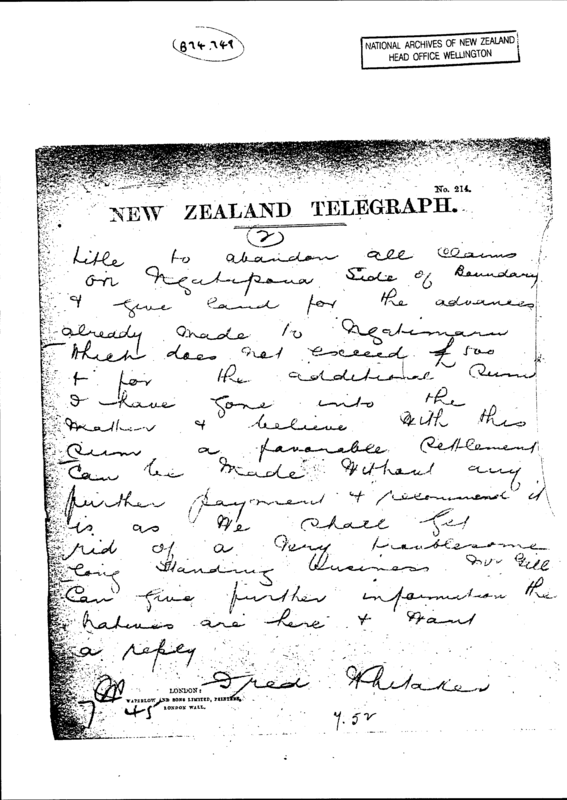 B74.749
NATIONAL ARCHIVES OF NEW ZEALAND
HEAD OFFICE WELLINGTON
No. 214.
NEW ZEALAND TELEGRAPH.
(2)
title to abandon all claims
on Ngatipaoa Side of Boundary
& give land for the advances
already made to Ngatimaru
Which does not exceed £500
& for the additional Sum
I have gone into the
Matter & believe With this
Sum a favorable Settlement
Can be Made Without any
further payment & recommend it
is as We shall get
rid of a Very troublesome
Long Standing business Mr Gill
Can give further information the
Natives are here & Want
a reply
Fred Whitaker
LONDON:
WATERLOW AND SONS LIMITED, PRINTERS,
LONDON WALL.
7 45
7.52